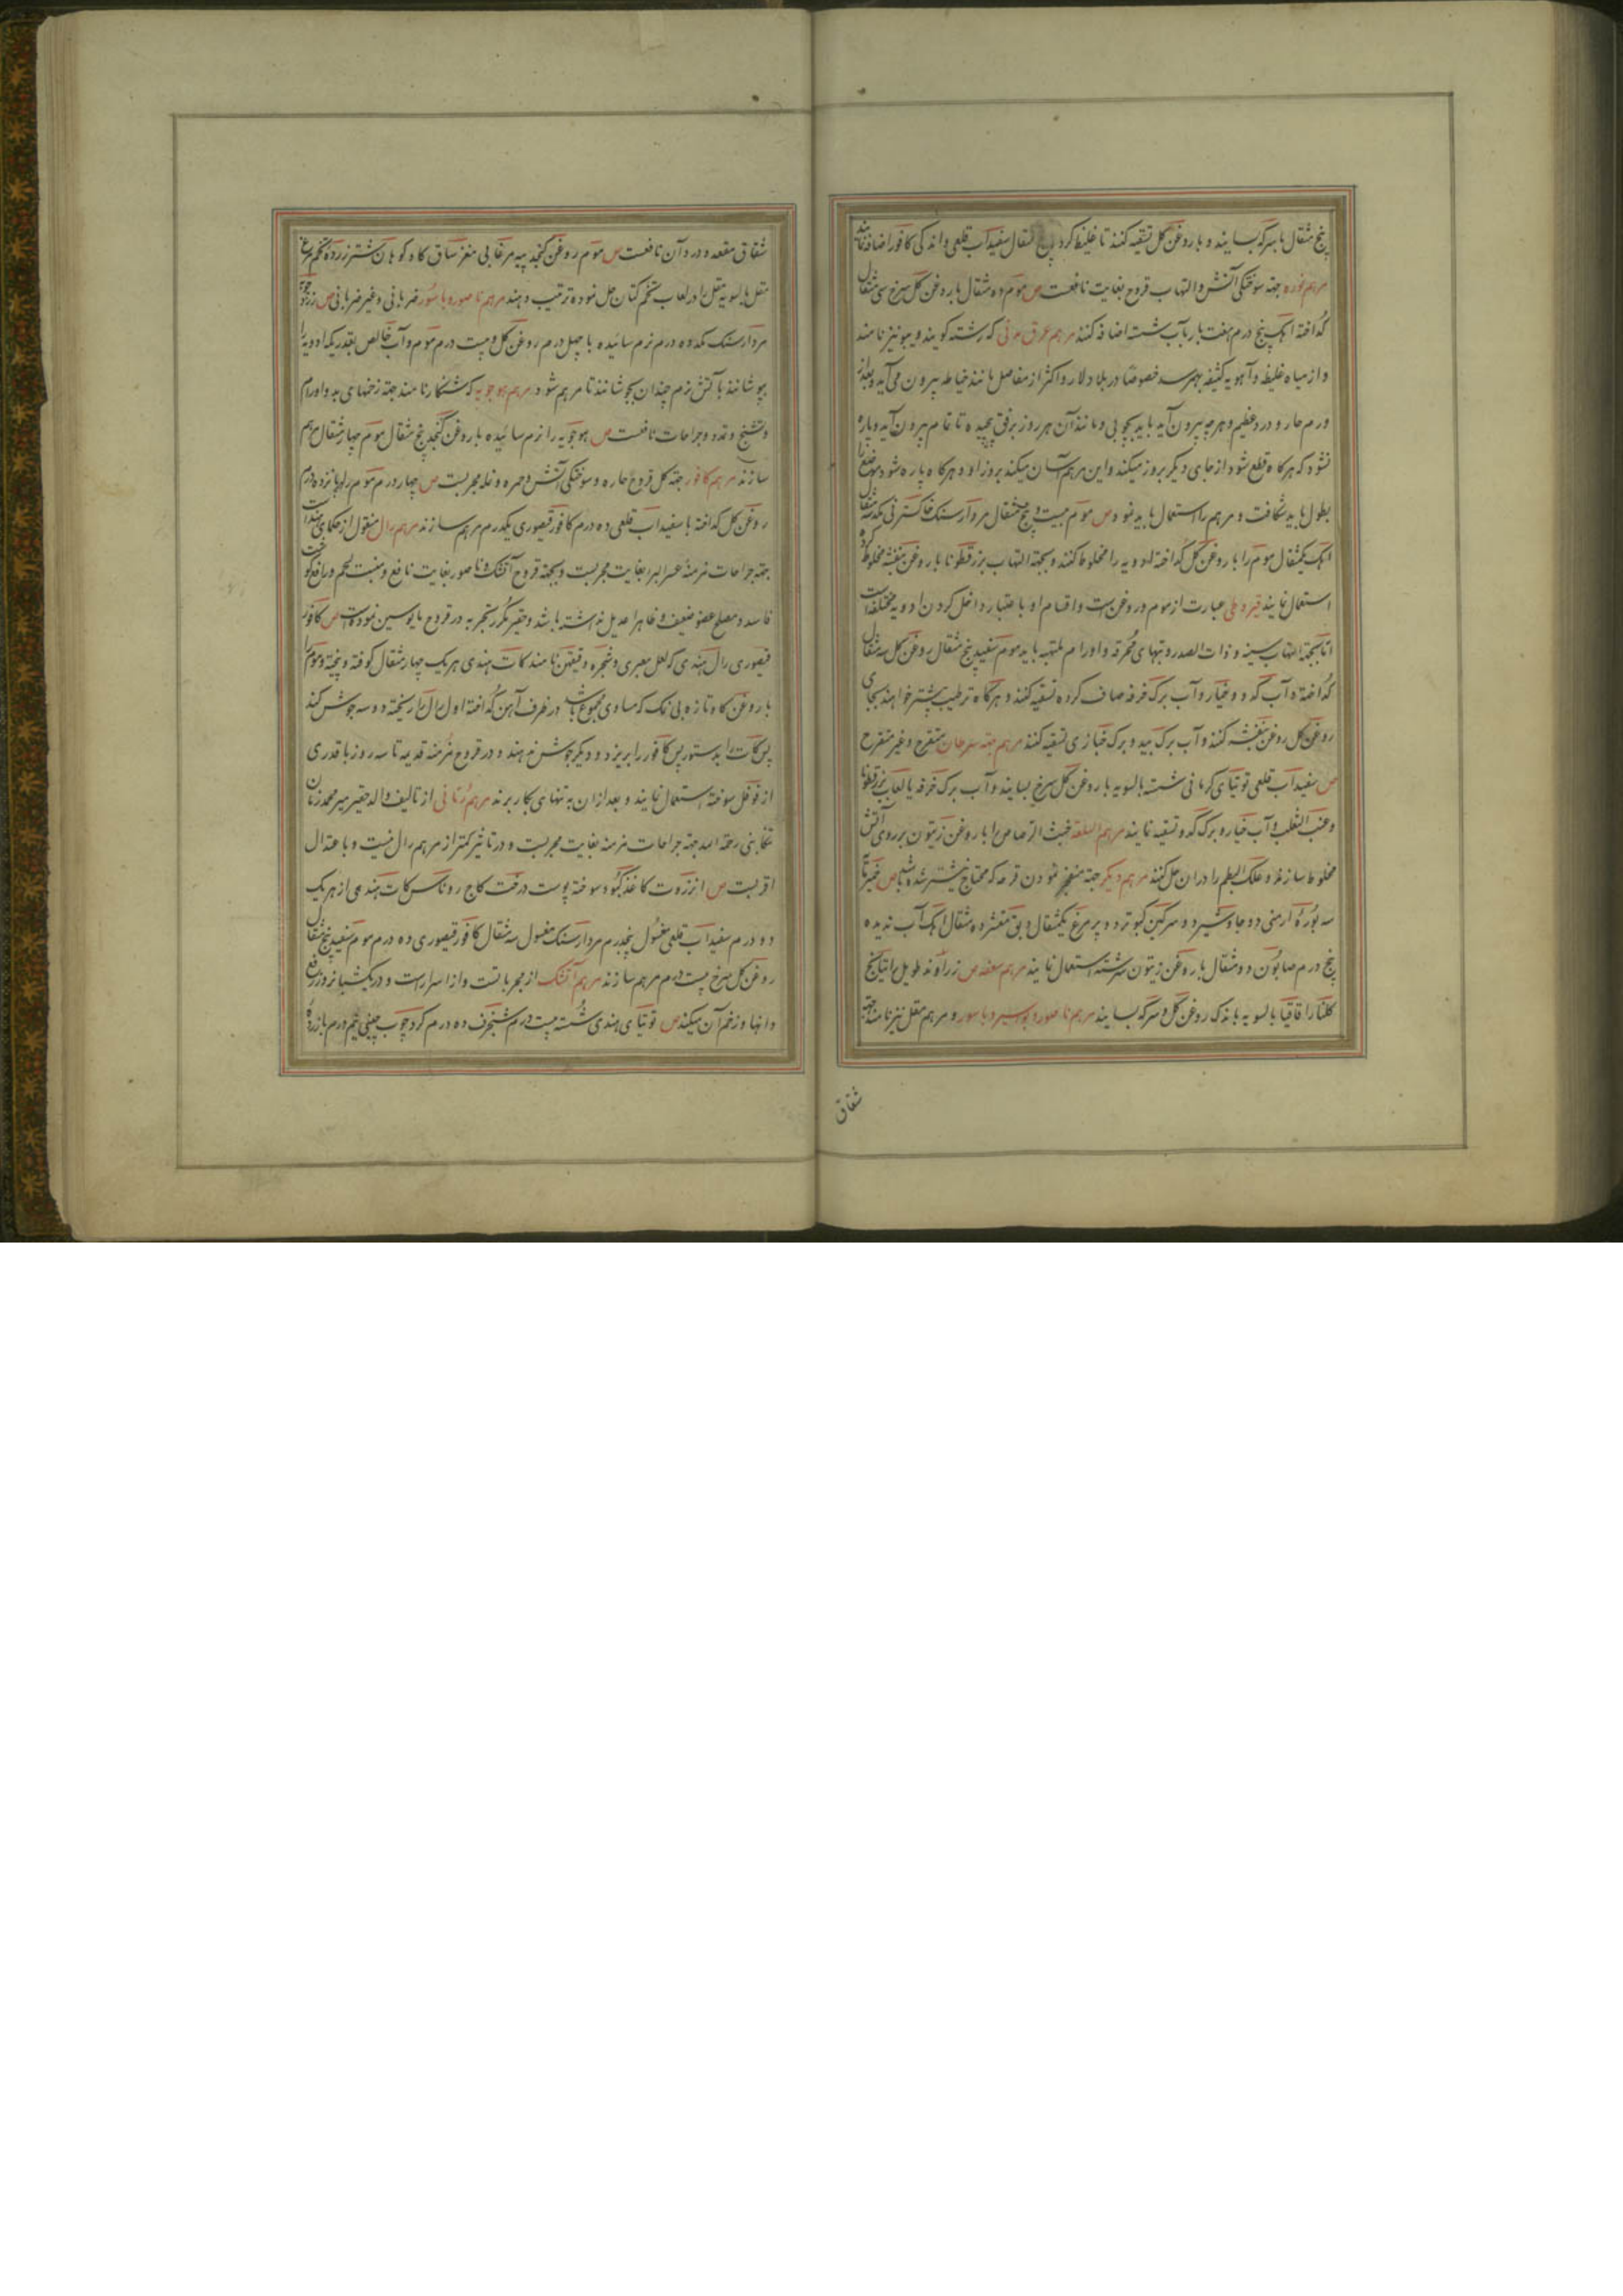 پنج مثقال با سرکه بسایند و با روغن کل تسقیه کنند تا غلیظ کردد پنج مثقال سفیداب قلعی و اندکی کافور اضافه نمایند
مرهم نوره جهة سوختکی آتش و التهاب قروح بغایت نافعست ص موم ده مثقال با روغن کل سرخ سی مثقال
کداخته اهک پنج درم هفت بار بآب شسته اضافه کنند مرهم عرق مدنی که رشته کویند و پیو نیز نامند
و از میاه غلیظه و آهویه کثیفه بهم رسد خصوصًا در بلاد لار و اکثر از مفاصل مانند خیاطه بیرون می آید و بعد از
ورم حار و درد عظیم و هر چه بیرون آید باید بچوبی و مانند آن هر روز برفق پیچیده تا تمام بیرون آید و پاره
نشود که هرکاه قطع شود از جای دیکر بروز میکند و این مرهم آسان میکند بروز او و هرکاه پاره شود موضع را
بطول باید شکافت و مرهم را استعمال باید نمود ص موم بیست و پنج مثقال مردارسنک خاکستر نی یکد سه مثقال
اهک یکمثقال موم را با روغن کل کداخته ادویه را مخلوط کنند و بجهة التهاب بزرقطونا با روغن بنفشه مخلوط کرده
استعمال نمایند قیروطی عبارت از موم و روغن است و اقسام او باعتبار داخل کردن ادویه مختلفه است
اما بجهة التهاب سینه و ذات الصدر و تبهای محرقه و اورام ملتهبه باید موم سفید پنج مثقال روغن کل سه مثقال
کداخته و آب کدو و خیار و آب برک خرفه صاف کرده تسقیه کنند و هرکاه ترطیب بیشتر خواهند بجای
روغن کل روغن بنفشه کنند و آب برک بید و برک خبازی تسقیه کنند مرهم جهة سرطان متقرح و غیر متقرح
ص سفیداب قلعی توتیای کرمانی شسته بالسویه با روغن کل سرخ بسایند و آب برک خرفه یا لعاب بزرقطونا
و عنب الثعلب و آب خیار و برک کدو تسقیه نمایند مرهم السلعة خبث الرصاص را با روغن زیتون بر روی آتش
مخلوط سازند و علک البطم را در ان حل کنند مرهم دیکر جهة منفجر نمودن قرحه که محتاج نیشتر شده باشد ص خمیر تا
سه بوره ارمنی دو جاوشیر دو سرکین کبوتر دو پر مرغ یکمثقال دبق مقشر ده مثقال اهک آب ندیده
پنج درم صابون دو مثقال با روغن زیتون سرشته استعمال نمایند مرهم سعفه ص زراوند طویل راتیانج
کلنار اقاقیا بالسویه باندک روغن کل و سرکه بسایند مرهم ناصور و بواسیر و باسور و مرهم مقل نیز نامند جهة
شقاق
شقاق مقعد و درد آن نافعست ص موم روغن کنجد پیه مرغابی مغز ساق کاو کوهان شتر زرده تخم مرغ
مقل بالسویه مقل را در لعاب تخم کتان حل نموده ترتیب دهند مرهم ناصور و باسور ضربانی و غیر ضربانی ص زردچوبه
مردارسنک یکد ده درم نرم سائیده با چهل درم روغن کل و بیست درم موم و آب خالص بقدریکه ادویه را
بپوشانند بآتش نرم چندان بجوشانند تا مرهم شود مرهم هوجویه که شنکار نامند جهة زخمهای بد و اورام
و تشنج و تمدد و جراحات نافعست ص هوجویه را نرم سائیده با روغن کنجد پنج مثقال موم چهار مثقال مرهم
سازند مرهم کافور جهة کل قروح حاره و سوختکی آتش و حمره و نمله مجربست ص چهار درم موم را با پانزده درم
روغن کل کداخته با سفیداب قلعی ده درم کافور قیصوری یکدرم مرهم سازند مرهم رال منقول از حکمای هند است
جهة جراحات مزمنه عسر البرء بغایت مجربست و بجهة قروح آتشک و ناصور بغایت نافع و منبت لحم و رافع کوشت
فاسد و مصلح عضو ضعیف و ظاهرا عدیل نداشته باشد و حقیر مکرر تجربه در قروح مایوسین نموده است ص کافور
قیصوری رال هندی که لعل معبری و شجره و قیقهن نامند کات هندی هر یک چهار مثقال کوفته و پخته و موم را
با روغن کاو تازه بی نمک که مساوی مجموع باشد در ظرف آهن کداخته اول رال را ریخته دو سه جوش کند
پس کات را بدستور پس کافور را بریزد و دیکر جوش ندهند و در قروح مزمنه قدیمه تا سه روز با قدری
از فوفل سوخته استعمال نمایند و بعد از ان به تنهائی بکار برند مرهم زمانی از تالیف والد حقیر میر محمد زمان
تنکابنی رحمه الله جهة جراحات مزمنه بغایت مجربست و در تاثیر کمتر از مرهم رال نیست و باعتدال
اقربست ص انزروت کاغذ کبود سوخته پوست درخت کاج روناس کات هندی از هر یک
دو درم سفیداب قلعی مغسول پنجدرم مردارسنک مغسول سه مثقال کافور قیصوری ده درم موم سفید پنج مثقال
روغن کل سرخ بیست درم مرهم سازند مرهم آتشک از مجرباتست و از اسرار است و در یکشبانروز رفع
دانها و زخم آن میکند ص توتیای هندی شسته بیست درم شنجرف ده درم کرد چوب چینی نیم درم با زرده